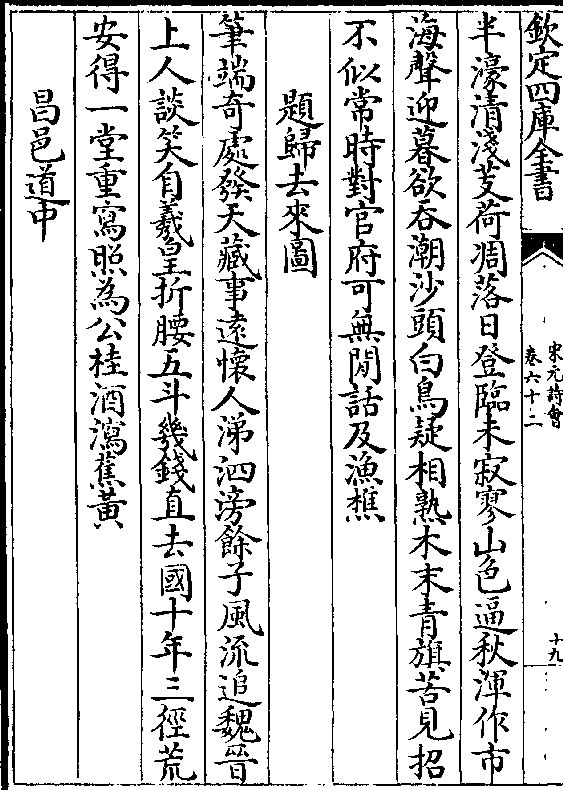 欽定四庫全書
宋元詩會
卷六十二
十九
半濠清淺芰荷凋落日登臨未寂寥山色逼秋渾作市
海聲迎暮欲吞潮沙頭白鳥疑相熟木末青旗苦見招
不似常時對官府可無閒話及漁樵
題歸去來圖
筆端奇處發天藏事遠懷人涕泗滂餘子風流追魏晉
上人談笑自羲皇折腰五斗幾錢直去國十年三徑荒
安得一堂重寫照為公桂酒瀉蕉黃
昌邑道中